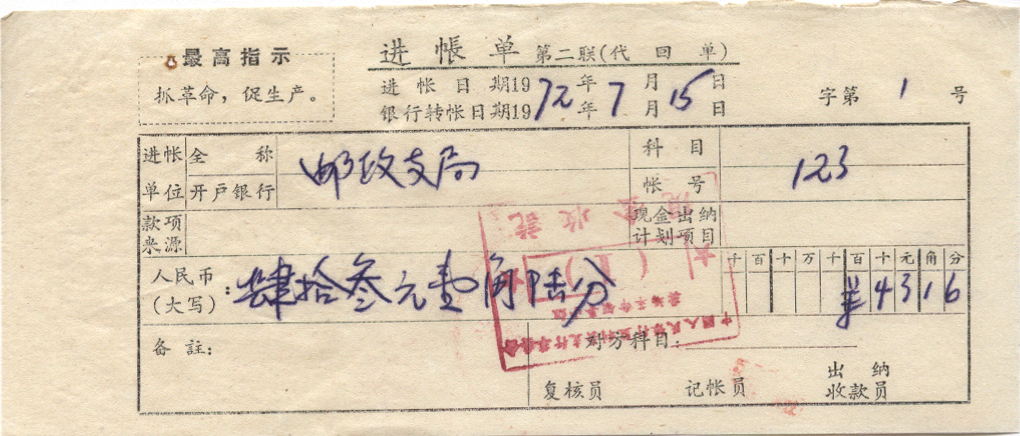 最高指示
抓革命，促生产。
进帐单 第二联(代回单)
进帐日期1972年7月15日
银行转帐日期19 年 月 日
字第 1 号
进帐单位
全称
邮政支局
开户银行
科目
帐号
123
款项来源
现金出纳计划项目
人民币(大写)：肆拾叁元壹角陆分
千百十万千百十元角分
¥4316
备註：
对方科目：
复核员 记帐员 出纳收款员